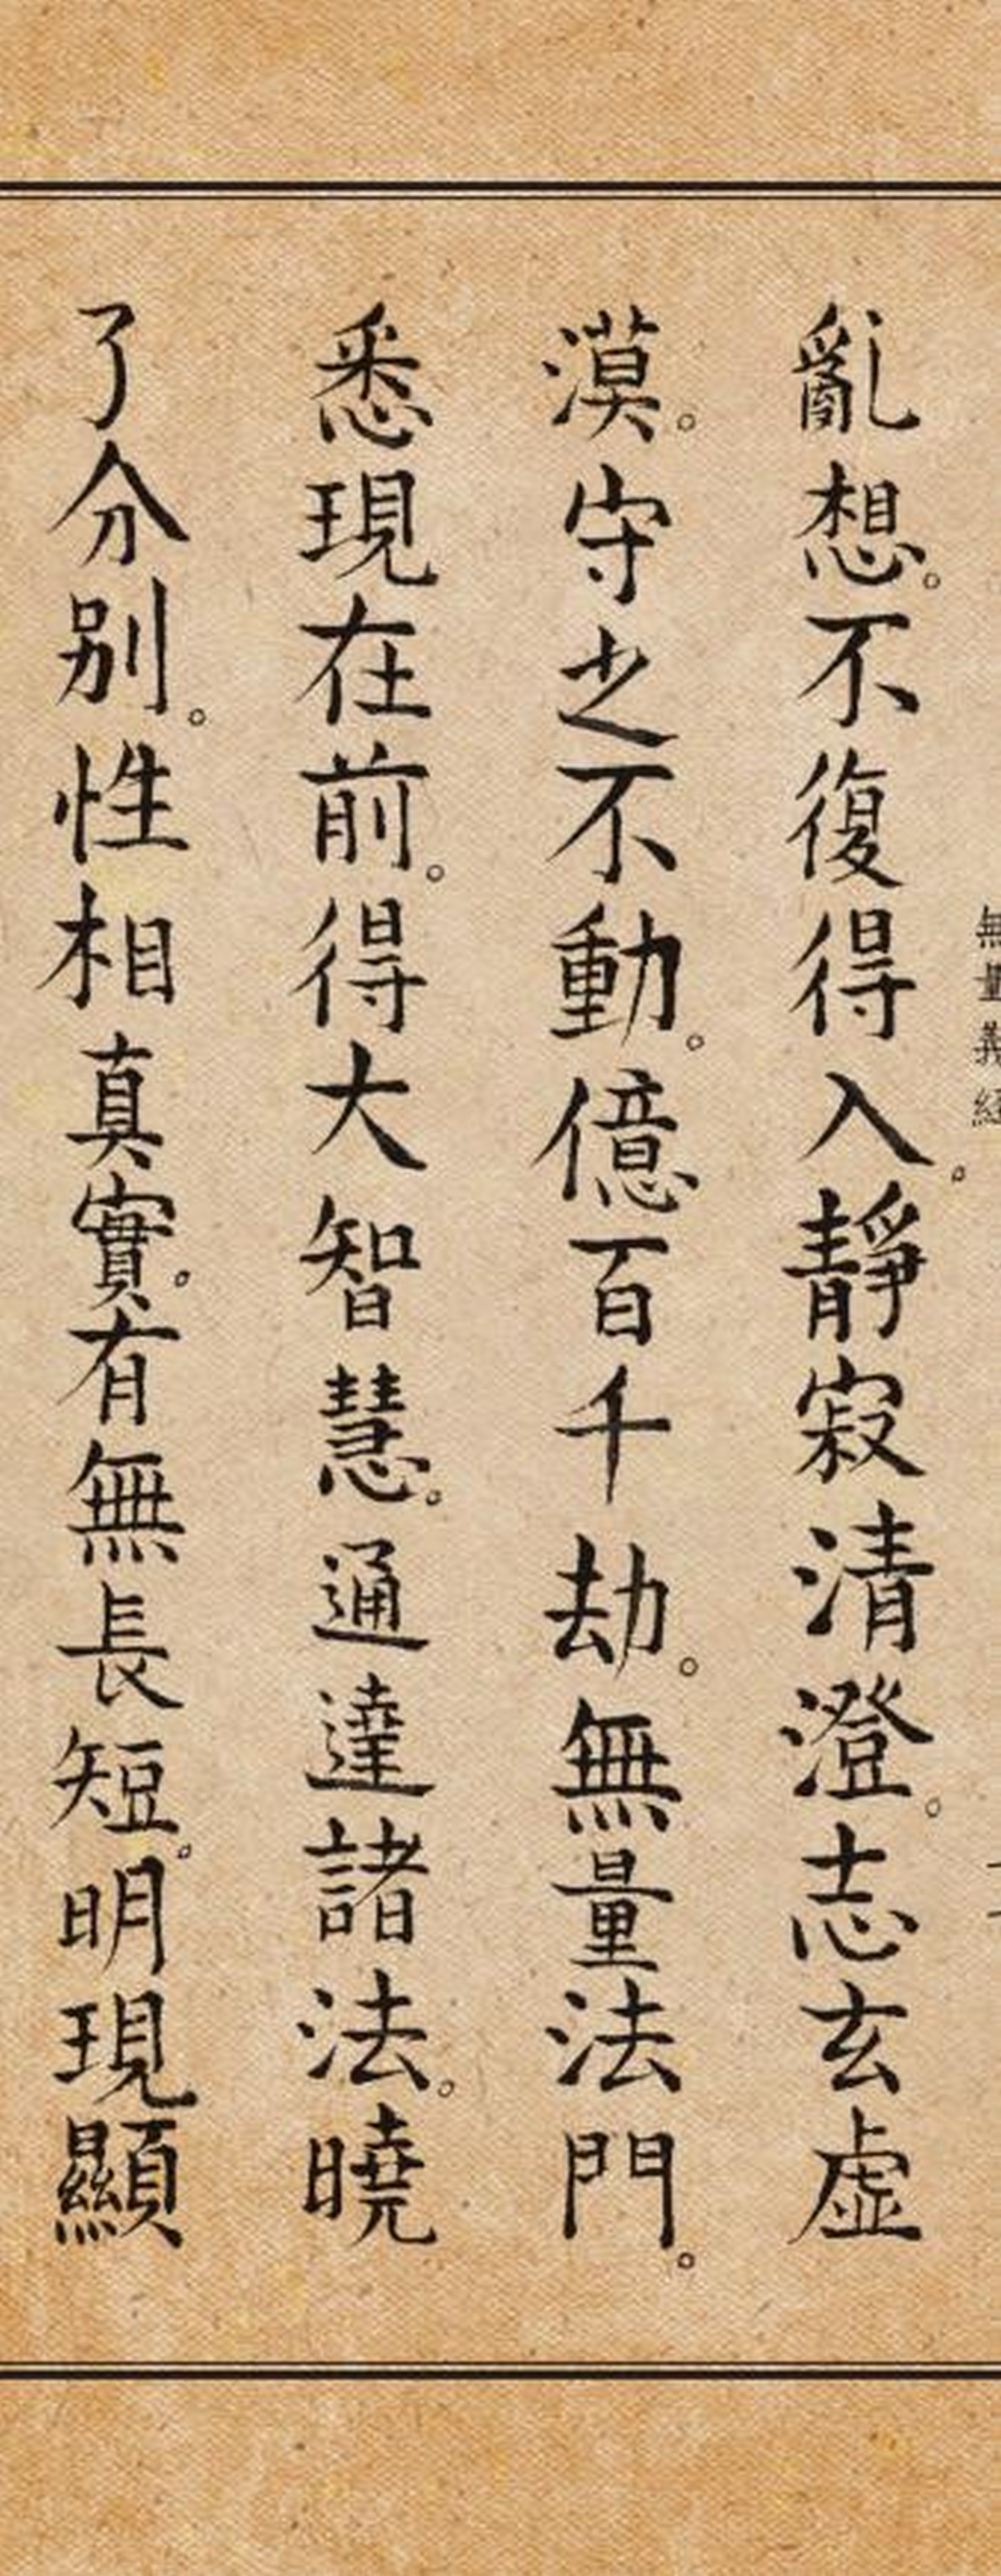 無量義經
亂想。不復得入。靜寂清澄。志玄虛
漠。守之不動。億百千劫。無量法門。
悉現在前。得大智慧。通達諸法。曉
了分別。性相真實。有無長短。明現顯